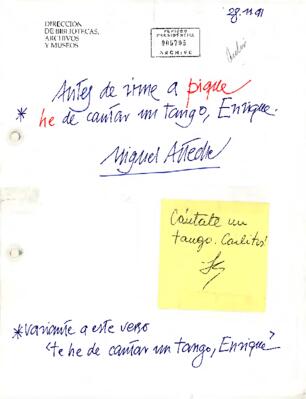 DIRECCIÓN
DE BIBLIOTECAS,
ARCHIVOS
Y MUSEOS
28-11-91
PERIODO
PRESIDENCIAL
005795
ARCHIVO
Antes de irme a pique
* he de cantar un tango, Enrique.
Miguel Arteche
Cántate un
tango. Carlitos!
*variante a este verso
"te he de cantar un tango, Enrique"